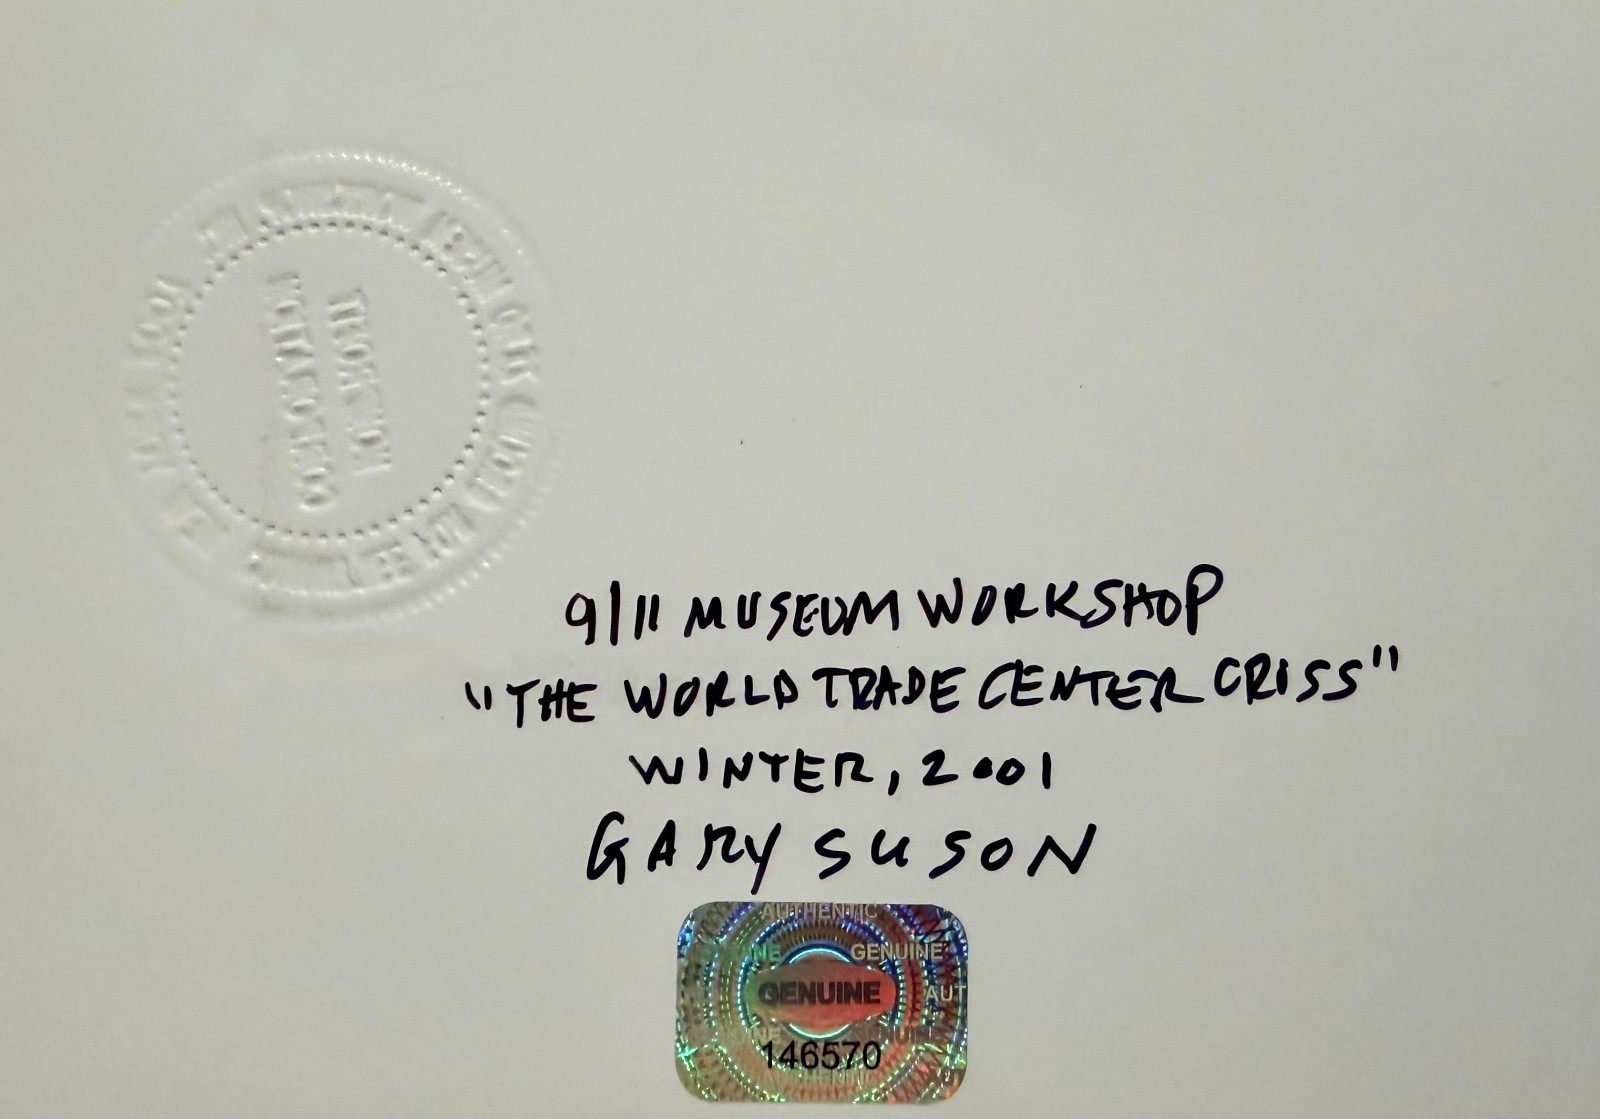 9/11 MUSEUM WORKSHOP
"THE WORLD TRADE CENTER CRISS"
WINTER, 2001
GARY SUSON
AUTHENTIC
NE GENUINE
GENUINE AUT
146570